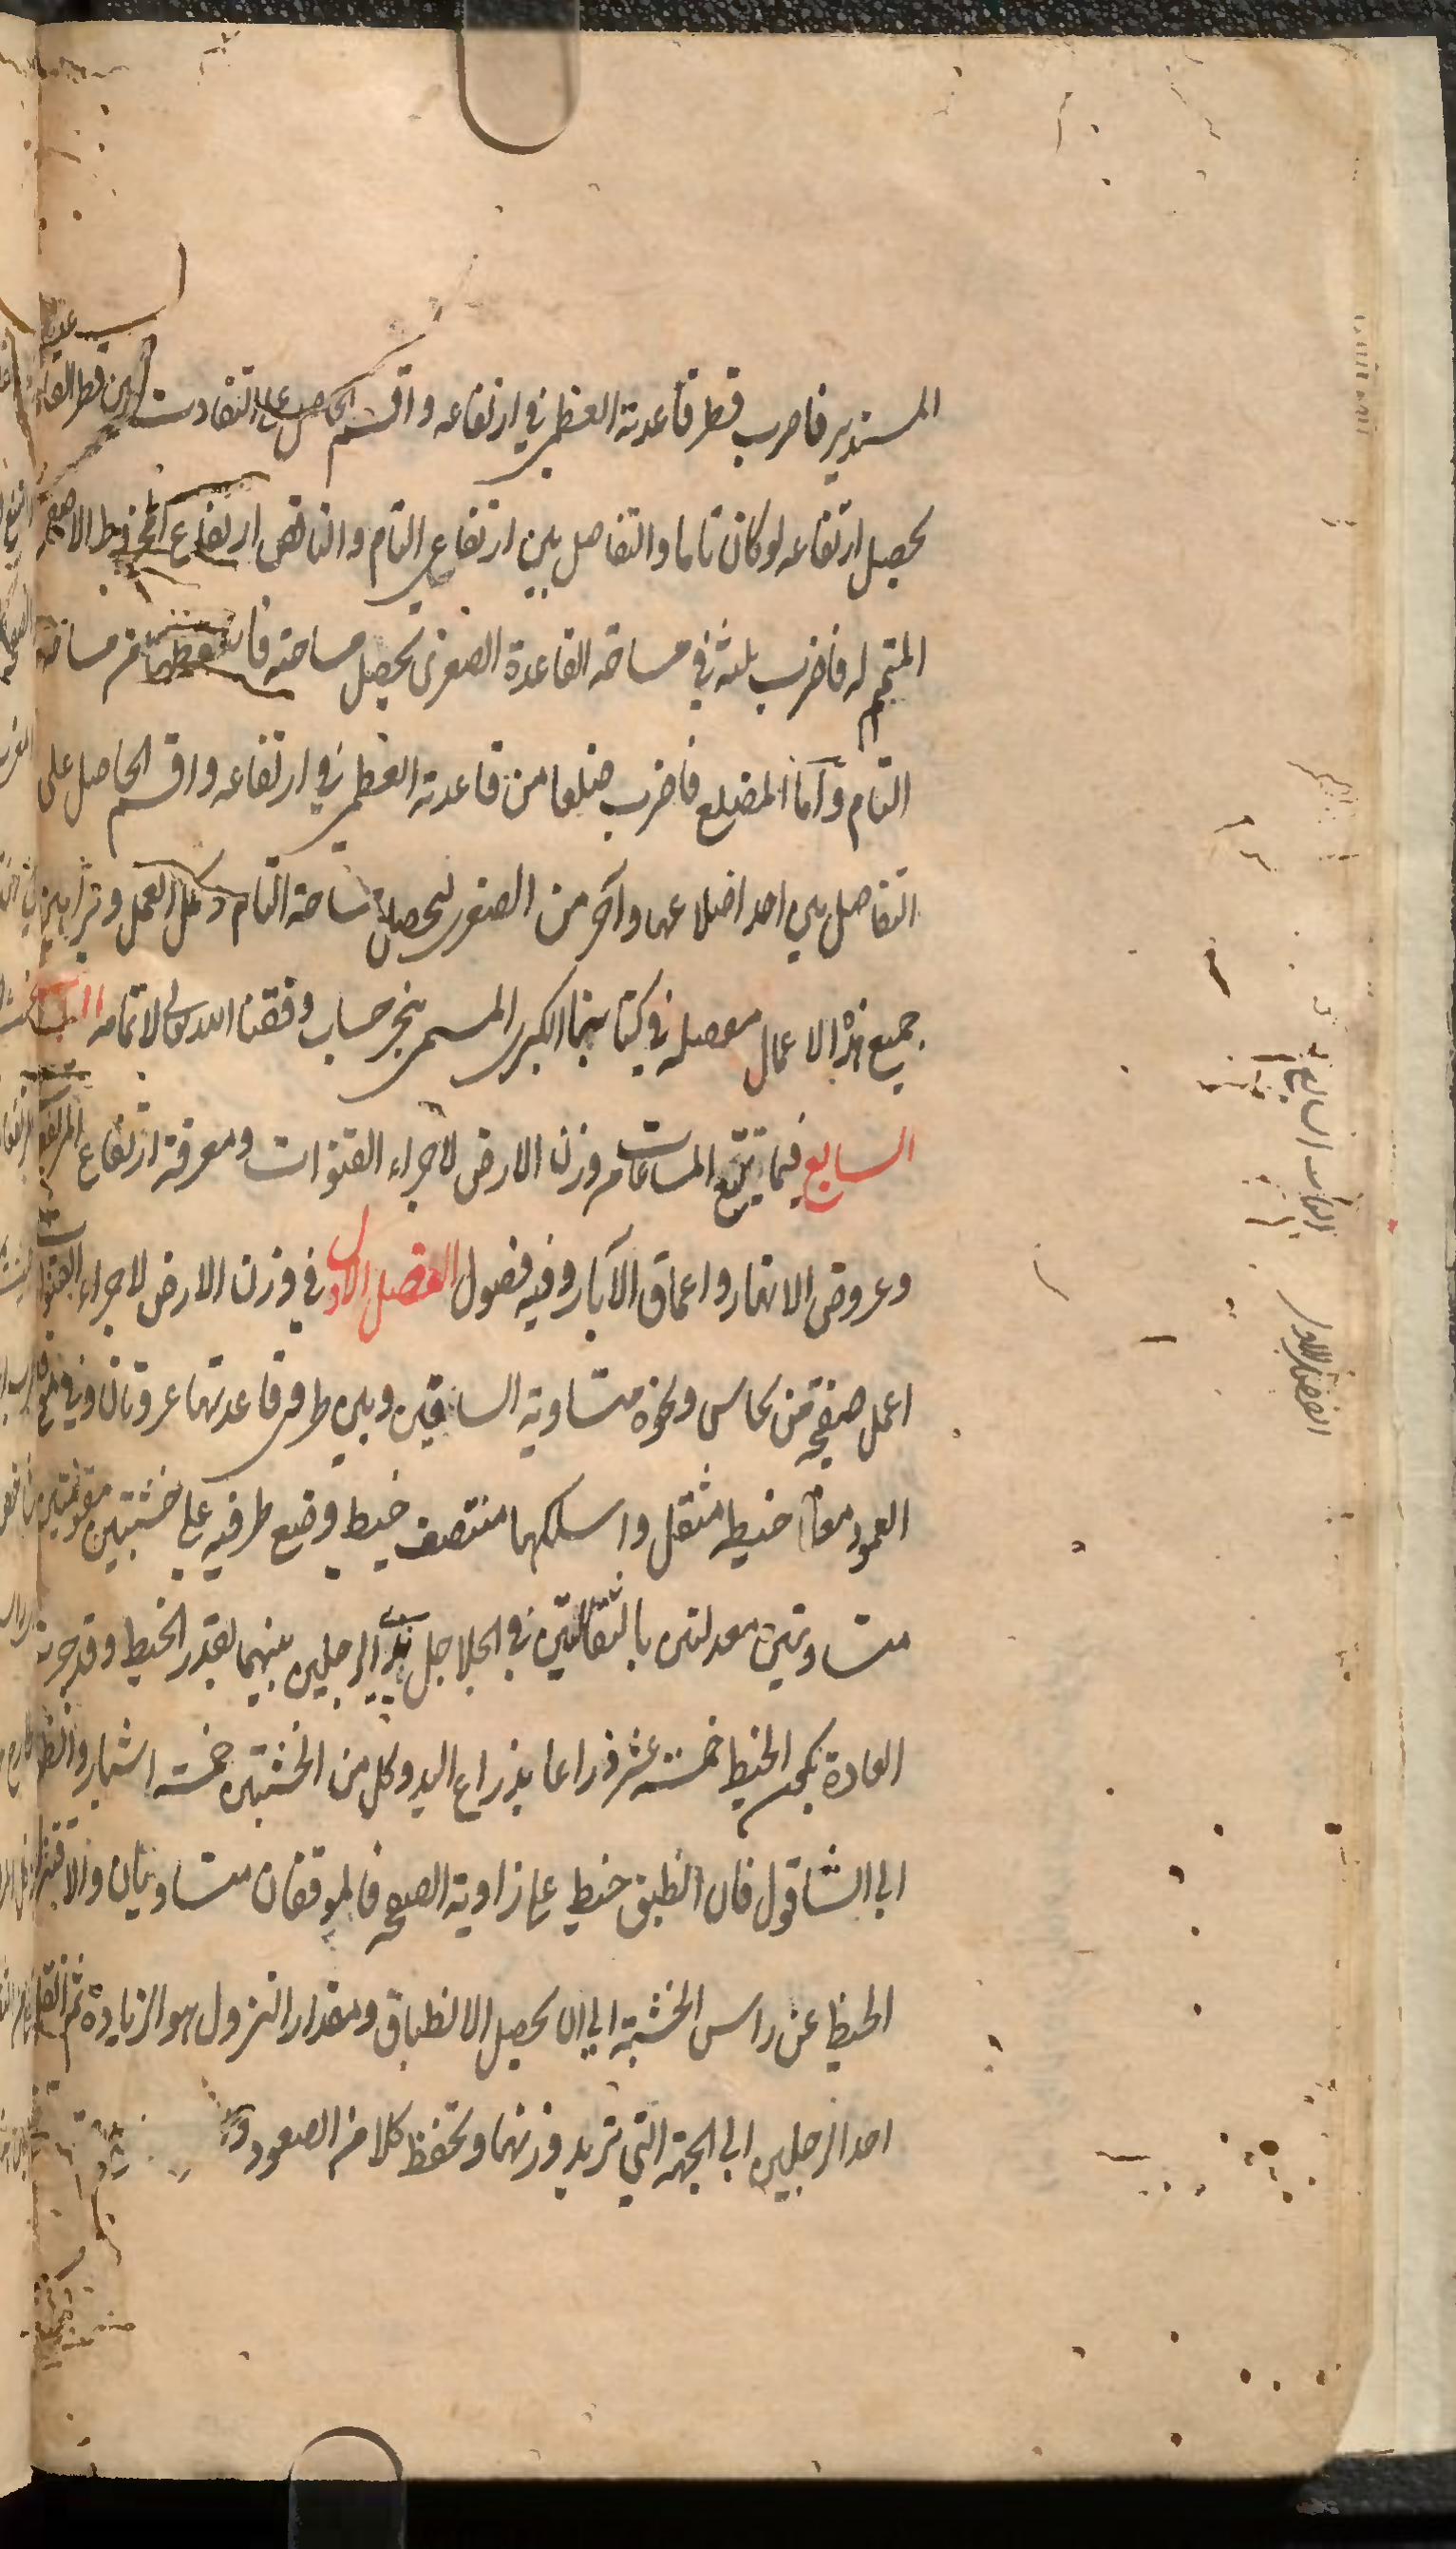 المستدير فاضرب قطر قاعدته العظمى في ارتفاعه واقسم الحاصل على التفاوت بين قطر القاعدتين
يحصل ارتفاعه لو كان تاما والتفاضل بين ارتفاعي التام والناقص ارتفاع المخروط الاصغر
المتمم له فاضرب ثلثه في مساحة القاعدة الصغرى يحصل مساحته فاسقطها من مساحة
التام واما المضلع فاضرب ضلعا من قاعدته العظمى في ارتفاعه واقسم الحاصل على
التفاضل بين احد اضلاعها وآخر من الصغرى ليحصل مساحة التام وكمل العمل وبراهين
جميع هذه الاعمال مفصله في كتابنا الكبير المسمى ببحر حساب وفقنا الله تعالى لاتمامه الباب
السابع فيما يتبع المساحات من وزن الارض لاجراء القنوات ومعرفة ارتفاع المرتفعات
وعروض الانهار واعماق الآبار وفيه فصول الفصل الاول في وزن الارض لاجراء القنوات
اعمل صفيحة من نحاس ونحوه متساوية الساقين وبين طرفي قاعدتها عروتان وفي موقع
العمود منها خيط مثقل واسلكها منتصف خيط وضع طرفيه على خشبتين مقومتين
متساويتين معدلتين بالثقالتين في الجلاجل بيد الرجلين بينهما بقدر الخيط وقد جرت
العادة بكون الخيط خمسة عشر ذراعا بذراع اليد وكل من الخشبتين خمسة اشبار وانظر
الى الشاقول فان انطبق خيط على زاوية الصفيحه فالموقفان متساويان والا فنزل
الخيط عن راس الخشبة الى ان يحصل الانطباق ومقدار النزول هو الزيادة ثم انقل
احد الرجلين الى الجهة التي تريد وزنها وتحفظ كلا من الصعود و
الباب السابع
الفصل الاول